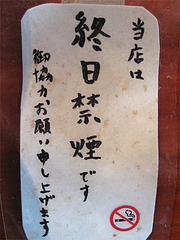 当店は
終日禁煙です
御協力お願い申し上げます